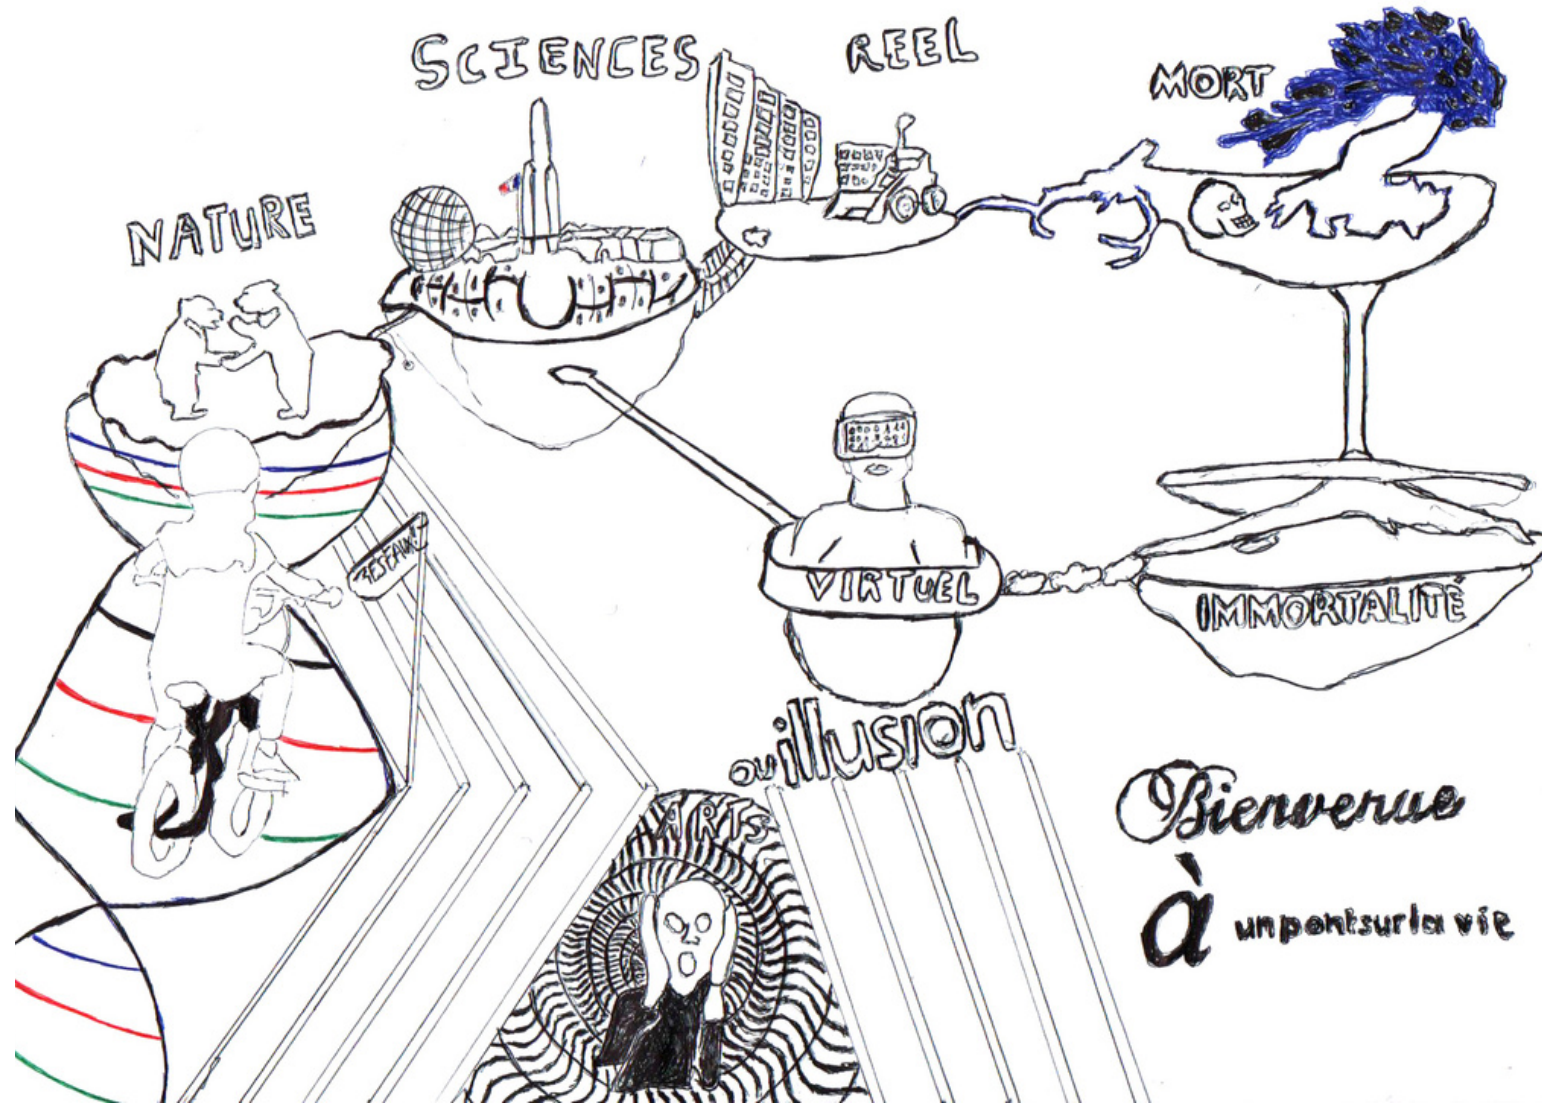 SCIENCES
REEL
MORT
NATURE
RESEAUX
VIRTUEL
IMMORTALITÉ
ou illusion
ARTS
Bienvenue
à unpontsurla vie